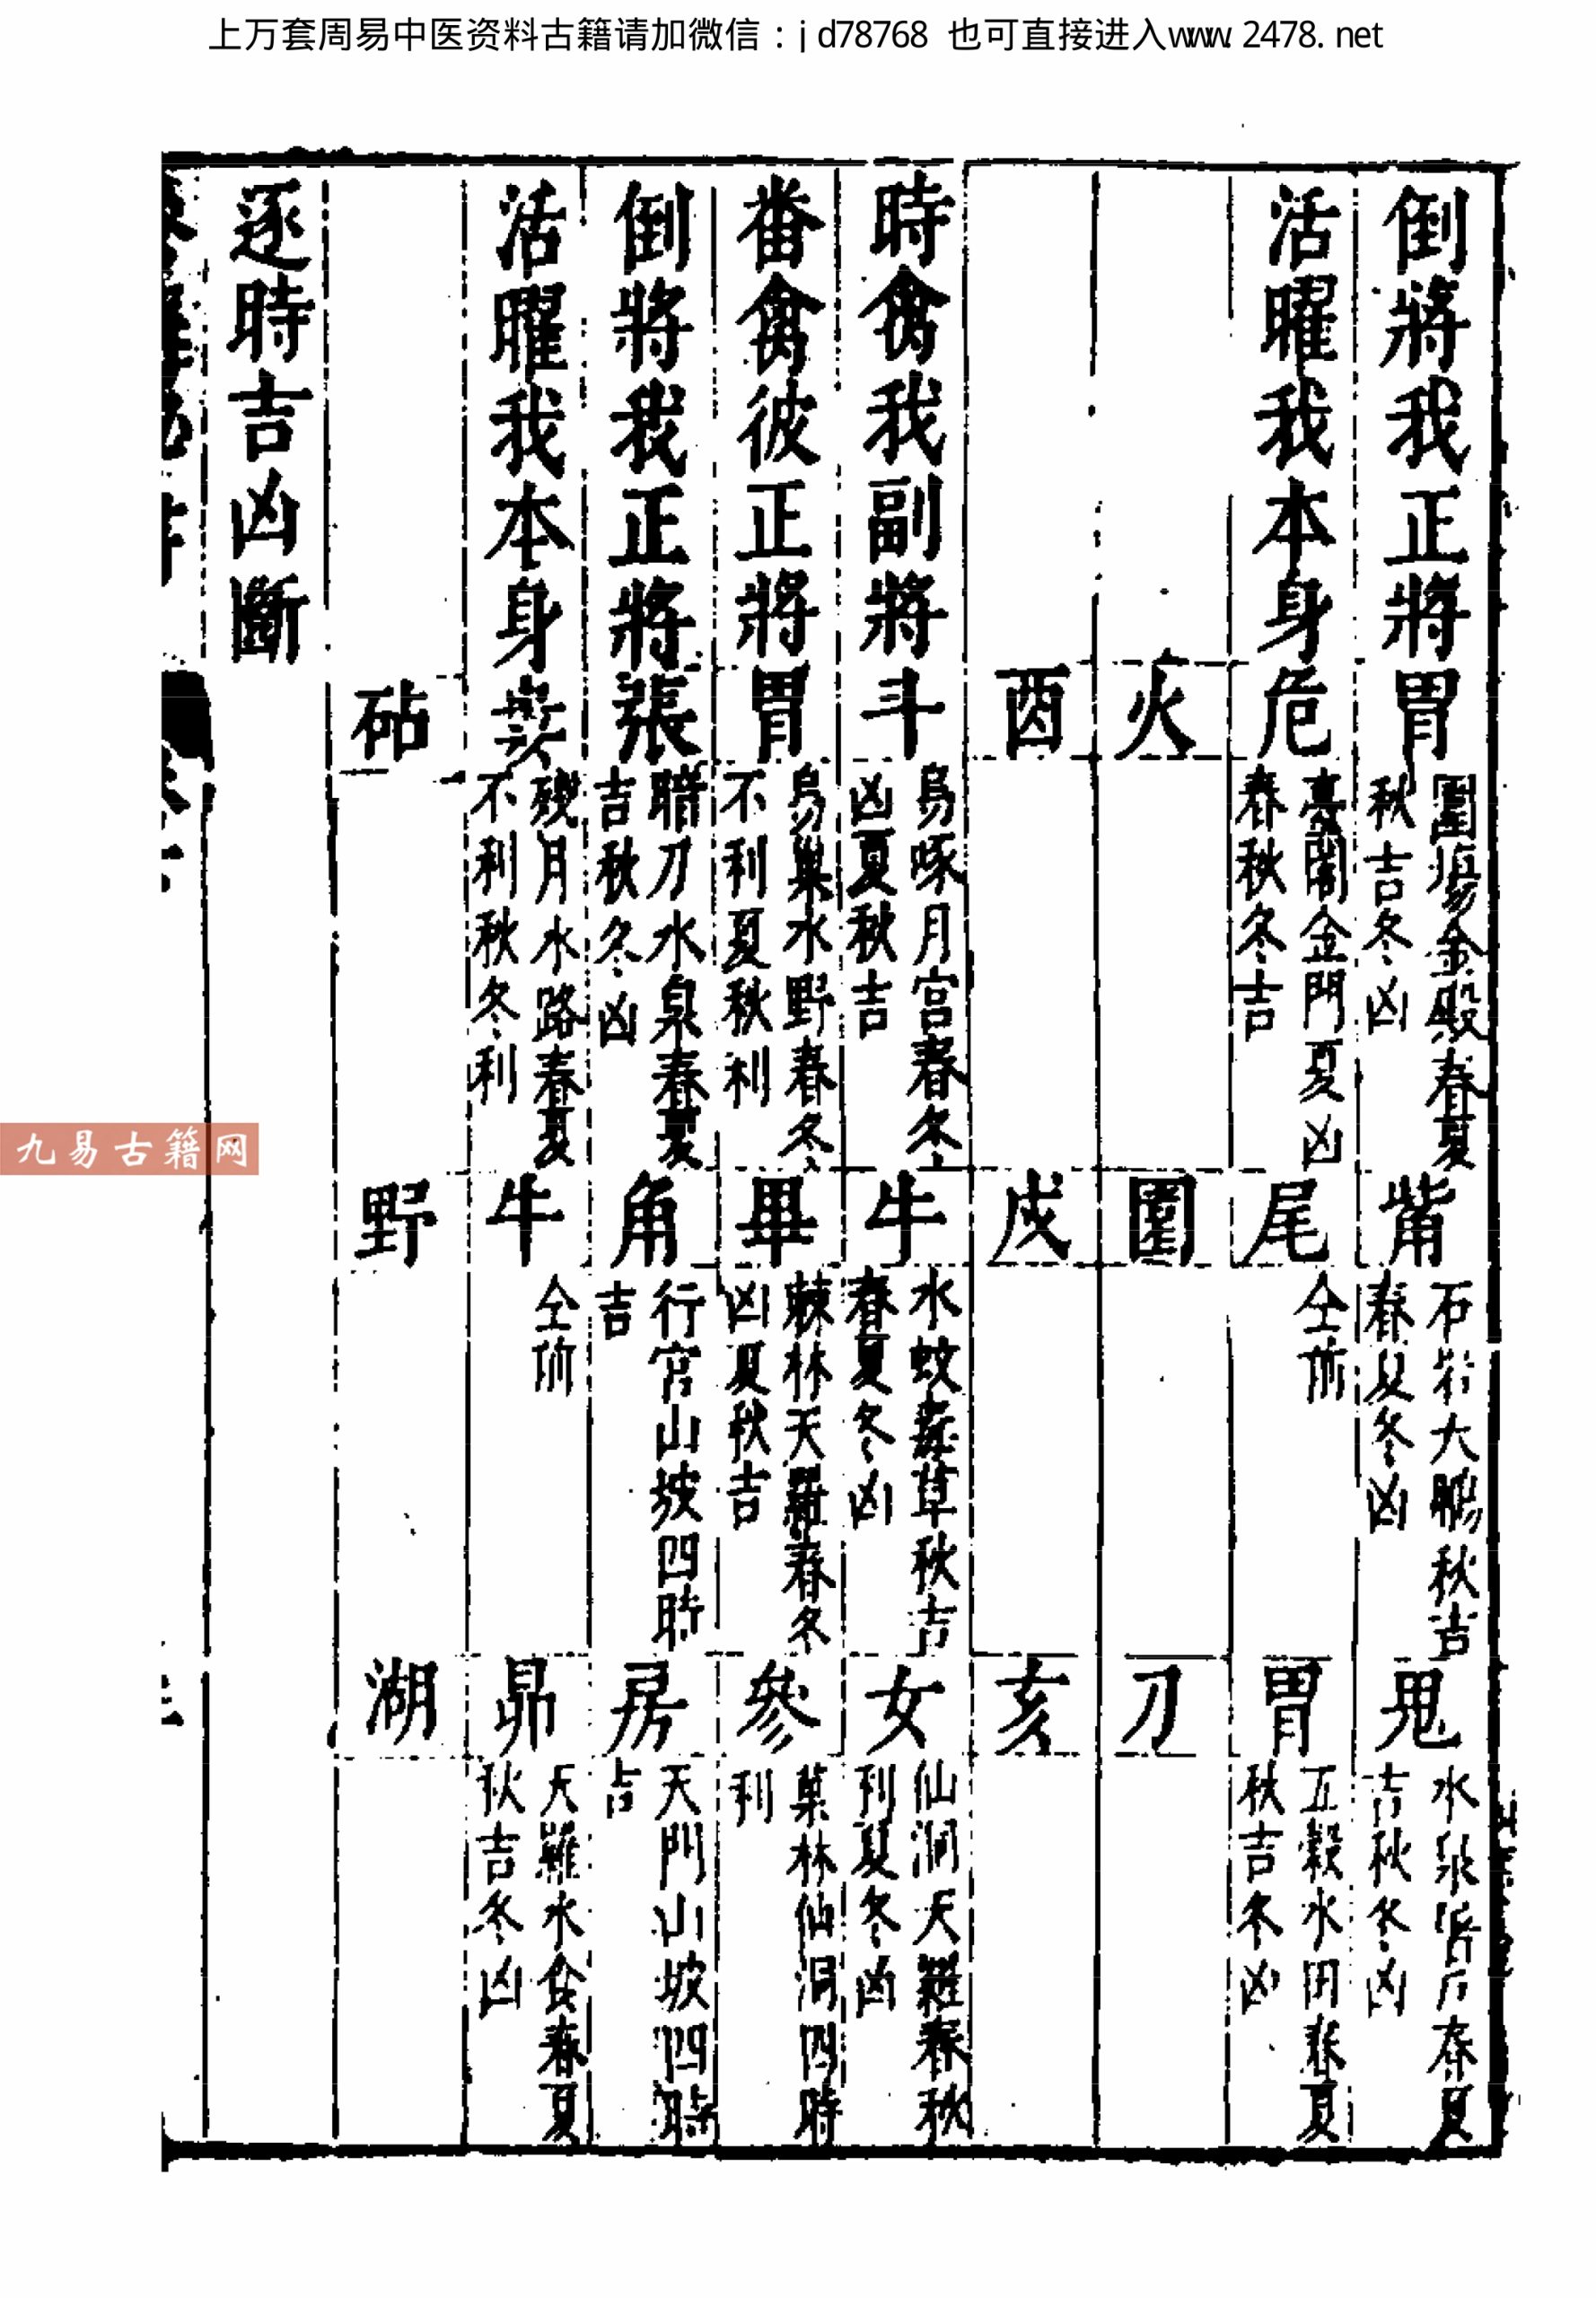 上万套周易中医资料古籍请加微信：jd78768 也可直接进入www.2478.net
倒將我正將胃
圍場金殿春夏
秋吉冬凶
觜
石岩大鵬秋吉
春夏冬凶
鬼
水泉
春夏
吉秋冬凶
活曜我本身危
臺閣金門夏凶
春秋冬吉
尾
仝前
胃
五穀水田春夏
秋吉冬凶
火
園
刀
酉
戌
亥
時禽我副將斗
烏啄月宫春冬
凶夏秋吉
牛
水蚊春草秋吉
春夏冬凶
女
仙澗天羅春秋
利夏冬凶
畨禽彼正將胃
烏巢水野春冬
不利夏秋利
畢
棘林天羅春冬
凶夏秋吉
參
菓林仙洞四時
利
倒將我正將張
腊刀水泉春夏
吉秋冬凶
角
行宫山坡四時
吉
房
天門山坡四時
吉
活曜我本身
殘月水路春夏
不利秋冬利
牛
仝前
昴
天羅水食春夏
秋吉冬凶
砧
野
湖
逐時吉凶斷
九易古籍网